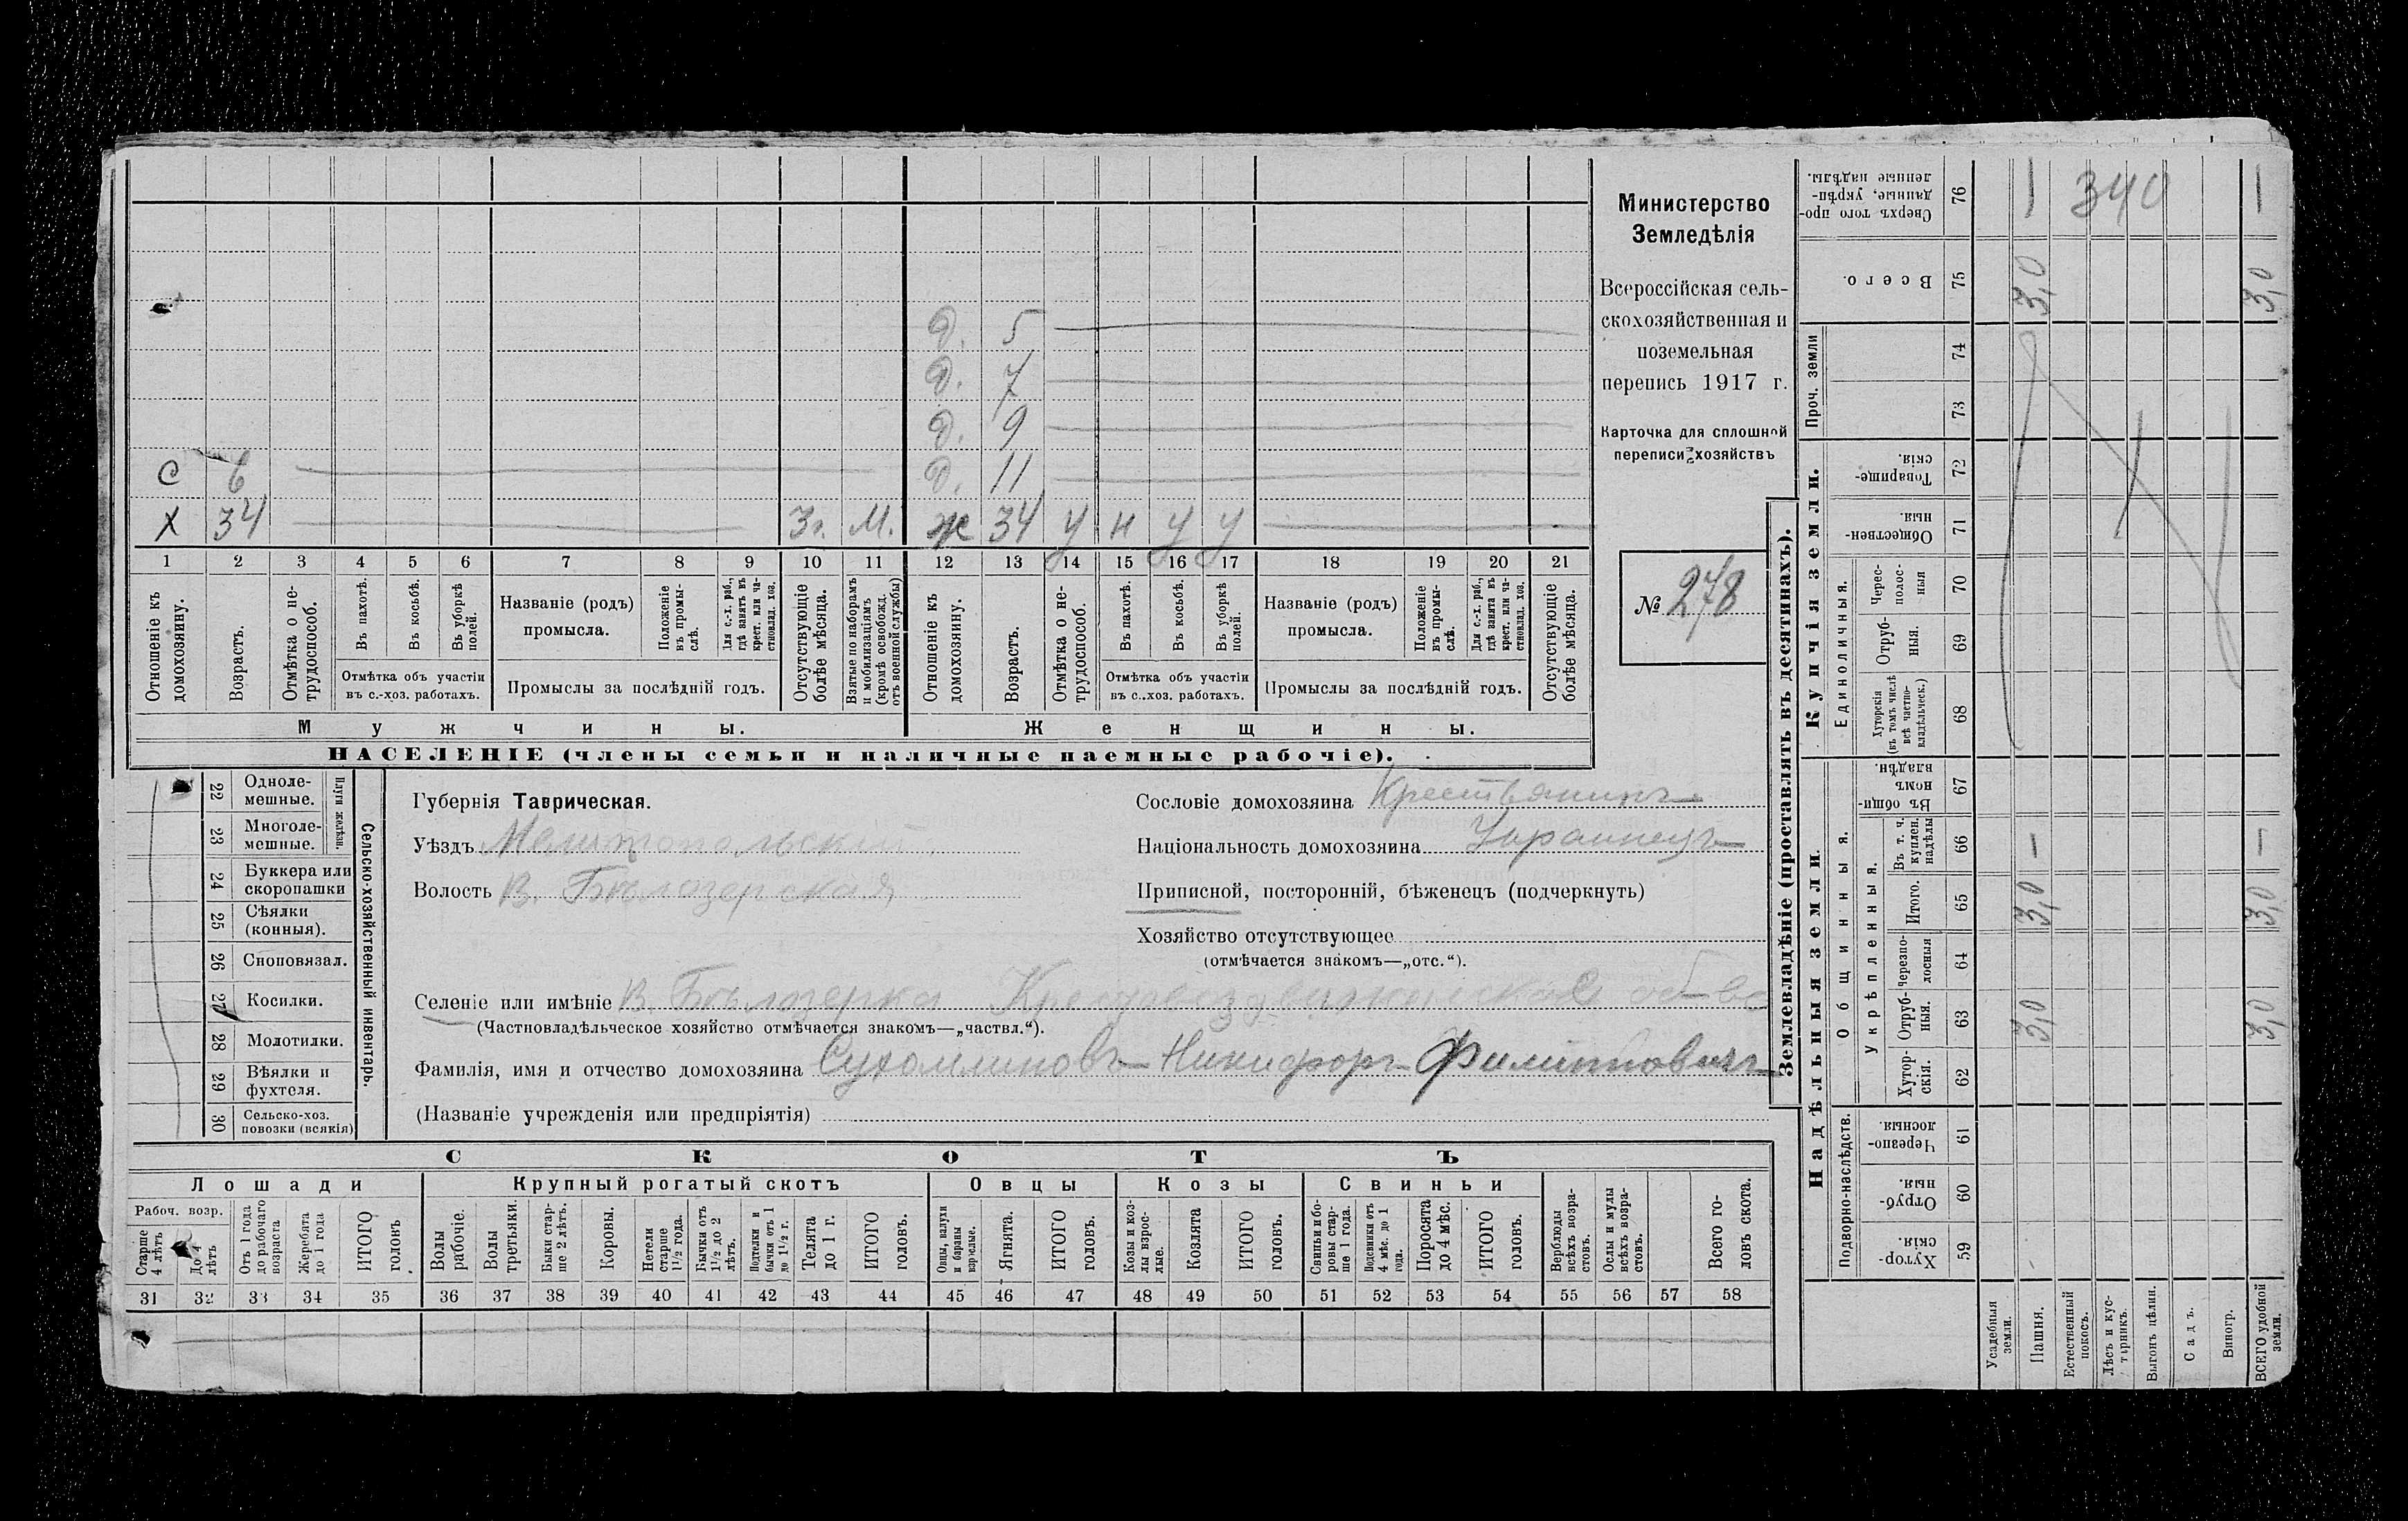 Министерство
Земледѣлія
Всероссійская сель-
скохозяйственная и
поземельная
перепись 1917 г.
Карточка для сплошной
переписи хозяйствъ
№ 278
Д. 5
Д. 7
Д. 9
С 6 Д. 11
Х 34 3г. М. Ж 34 У Н У У
1 2 3 4 5 6 7 8 9 10 11 12 13 14 15 16 17 18 19 20 21
Отношеніе къ домохозяину.
Возрастъ.
Отмѣтка о не-трудоспособ.
Въ пахотѣ.
Въ косьбѣ.
Въ уборкѣ полей.
Отмѣтка объ участіи
въ с.-хоз. работахъ.
Названіе (родъ)
промысла.
Положеніе въ промы-слѣ.
Для с.-х. раб., гдѣ занятъ въ крест. или ча-стновлад. хоз.
Промыслы за послѣдній годъ.
Отсутствующіе болѣе мѣсяца.
Взятые по наборамъ и мобилизаціямъ (кромѣ освобожд. отъ военной службы)
Отношеніе къ домохозяину.
Возрастъ.
Отмѣтка о не-трудоспособ.
Въ пахотѣ.
Въ косьбѣ.
Въ уборкѣ полей.
Отмѣтка объ участіи
въ с.-хоз. работахъ.
Названіе (родъ)
промысла.
Положеніе въ промы-слѣ.
Для с.-х. раб., гдѣ занята въ крест. или ча-стновлад. хоз.
Промыслы за послѣдній годъ.
Отсутствующіе болѣе мѣсяца.
Мужчины. Женщины.
НАСЕЛЕНІЕ (члены семьи и наличные наемные рабочіе).
Сельско-хозяйственный инвентарь.
Плуги желѣзн.
22 Одноле-мешные.
23 Многоле-мешные.
24 Буккера или скоропашки
25 Сѣялки (конныя).
26 Сноповязал.
27 Косилки.
28 Молотилки.
29 Вѣялки и фухтеля.
30 Сельско-хоз. повозки (всякія)
Губернія Таврическая.
Уѣздъ Мелитопольскій
Волость В. Бѣлозерская
Сословіе домохозяина Крестьянинъ
Національность домохозяина Украинецъ
Приписной, посторонній, бѣженецъ (подчеркнуть)
Хозяйство отсутствующее
(отмѣчается знакомъ—„отс.“).
Селеніе или имѣніе В. Бѣлозерка Крестовоздвиженское об-во
(Частновладѣльческое хозяйство отмѣчается знакомъ—„частвл.“).
Фамилія, имя и отчество домохозяина Сухомлиновъ Никифоръ Филипповичъ
(Названіе учрежденія или предпріятія)
СКОТЪ
Лошади Крупный рогатый скотъ Овцы Козы Свиньи
Рабоч. возр.
Старше 4 лѣтъ
До 4 лѣтъ
Отъ 1 года до рабочаго возраста
Жеребята до 1 года
ИТОГО головъ
Волы рабочіе.
Волы третьяки.
Быки стар-ше 2 лѣтъ.
Коровы.
Нетели старше 1½ года.
Бычки отъ 1½ до 2 лѣтъ.
Подтелки и бычки отъ 1 до 1½ г.
Телята до 1 г.
ИТОГО головъ.
Овцы, валухи и бараны взрослые.
Ягнята.
ИТОГО головъ.
Козы и коз-лы взрос-лые.
Козлята
ИТОГО головъ.
Свиньи и бо-ровы стар-ше 1 года.
Подсвинки отъ 4 мѣс. до 1 года.
Поросята до 4 мѣс.
ИТОГО головъ.
Верблюды всѣхъ возра-стовъ.
Ослы и мулы всѣхъ возра-стовъ.
Всего го-ловъ скота.
31 32 33 34 35 36 37 38 39 40 41 42 43 44 45 46 47 48 49 50 51 52 53 54 55 56 57 58
Землевладѣніе (проставлять въ десятинахъ).
Надѣльныя земли.
Купчія земли.
Проч. земли
Подворно-наслѣдств.
Общинныя.
Укрѣпленныя.
Единоличныя.
Сверхъ того про-данные, укрѣп-ленные надѣлы. 76 340
Всего. 75 3,0 3,0
74
73
Товарище-скія. 72
Обществен-ныя. 71
Черес-полос-ныя 70
Отруб-ныя. 69
Хуторскія (въ томъ числѣ всѣ частно-владѣльческ.) 68
Въ общин-номъ владѣн. 67
Въ т. ч. куплен. надѣлы 66 — —
Итого. 65 3,0 3,0
Черезпо-лосныя 64
Отруб-ныя. 63 3,0 3,0
Хутор-скія. 62
Черезпо-лосныя. 61
Отруб-ныя. 60
Хутор-скія. 59
Усадебная земли.
Пашня.
Естественный покосъ.
Лѣсъ и кус-тарникъ.
Выгонъ цѣлин.
Садъ.
Виногр.
ВСЕГО удобной земли.